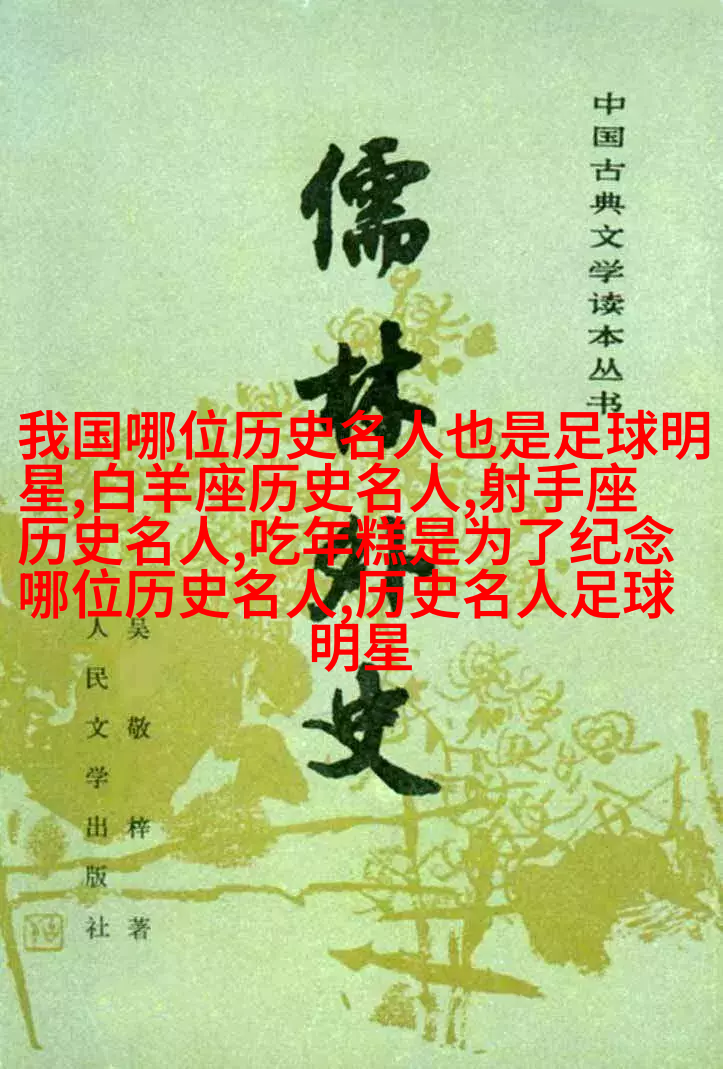 中国古典文学读本丛书
儒林外史
我国哪位历史名人也是足球明
星,白羊座历史名人,射手座
历史名人,吃年糕是为了纪念
哪位历史名人,历史名人足球
明星
吴敬梓著
人民文学出版社